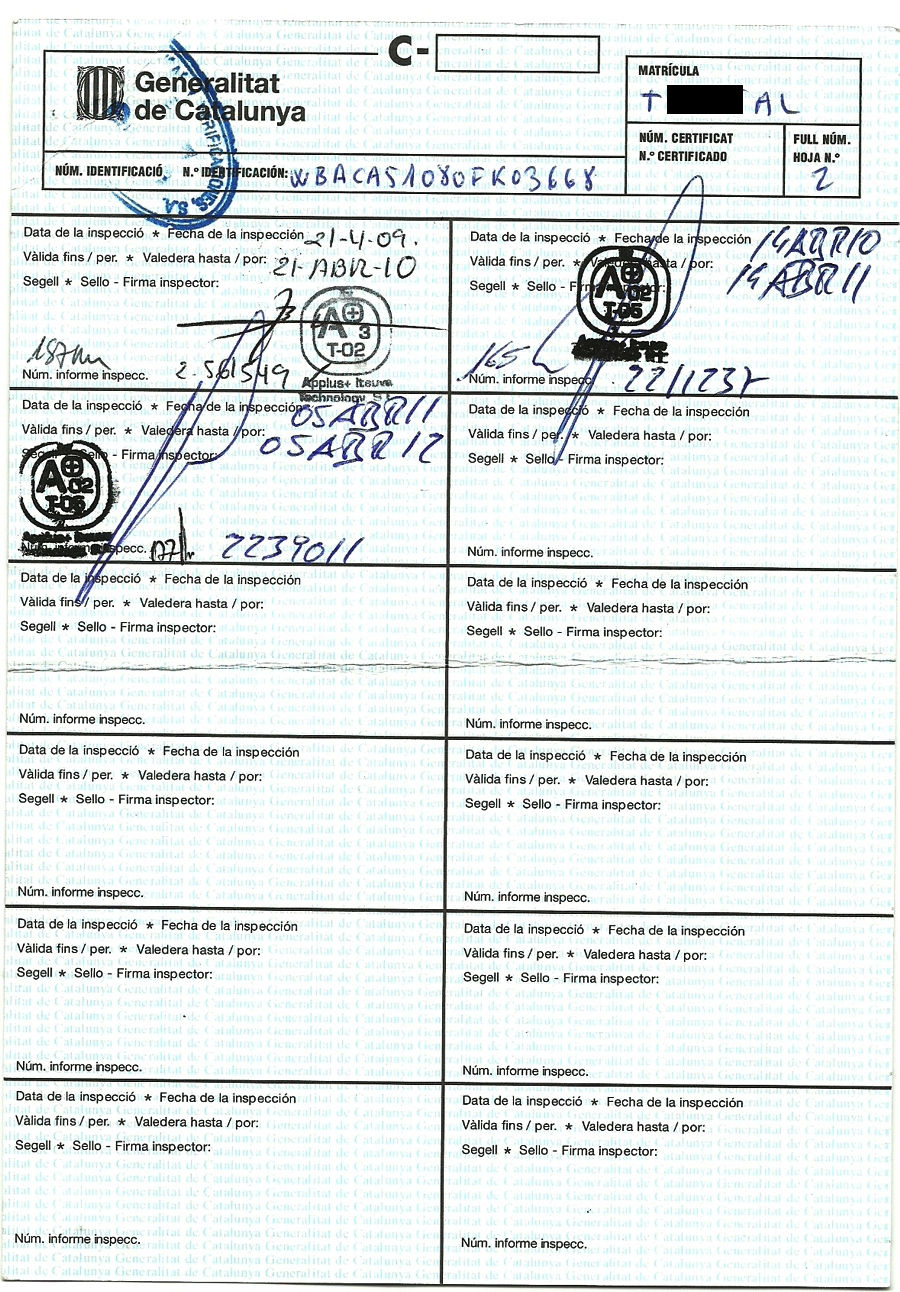 C-
Generalitat
de Catalunya
MATRÍCULA
T AL
NÚM. CERTIFICAT
N.º CERTIFICADO
FULL NÚM.
HOJA N.º
2
NÚM. IDENTIFICACIÓ N.º IDENTIFICACIÓN: WBACA51080FK03668
Data de la inspecció * Fecha de la inspección 21-4-09.
Vàlida fins / per. * Valedera hasta / por: 21-ABR-10
Segell * Sello - Firma inspector:
A 3
T-02
Applus+ Iteuve
Technology
Núm. informe inspecc. 2.561549
Data de la inspecció * Fecha de la inspección 14ABR10
Vàlida fins / per. * Valedera hasta / por: 14ABR11
Segell * Sello - Firma inspector:
A 02
T-05
165
Núm. informe inspecc. 2211237
Data de la inspecció * Fecha de la inspección 05ABR11
Vàlida fins / per. * Valedera hasta / por: 05ABR12
Segell * Sello - Firma inspector:
A 02
T-05
Applus+ Iteuve
Núm. informe inspecc. 2239011
Data de la inspecció * Fecha de la inspección
Vàlida fins / per. * Valedera hasta / por:
Segell * Sello - Firma inspector:
Núm. informe inspecc.
Data de la inspecció * Fecha de la inspección
Vàlida fins / per. * Valedera hasta / por:
Segell * Sello - Firma inspector:
Núm. informe inspecc.
Data de la inspecció * Fecha de la inspección
Vàlida fins / per. * Valedera hasta / por:
Segell * Sello - Firma inspector:
Núm. informe inspecc.
Data de la inspecció * Fecha de la inspección
Vàlida fins / per. * Valedera hasta / por:
Segell * Sello - Firma inspector:
Núm. informe inspecc.
Data de la inspecció * Fecha de la inspección
Vàlida fins / per. * Valedera hasta / por:
Segell * Sello - Firma inspector:
Núm. informe inspecc.
Data de la inspecció * Fecha de la inspección
Vàlida fins / per. * Valedera hasta / por:
Segell * Sello - Firma inspector:
Núm. informe inspecc.
Data de la inspecció * Fecha de la inspección
Vàlida fins / per. * Valedera hasta / por:
Segell * Sello - Firma inspector:
Núm. informe inspecc.
Data de la inspecció * Fecha de la inspección
Vàlida fins / per. * Valedera hasta / por:
Segell * Sello - Firma inspector:
Núm. informe inspecc.
Data de la inspecció * Fecha de la inspección
Vàlida fins / per. * Valedera hasta / por:
Segell * Sello - Firma inspector:
Núm. informe inspecc.